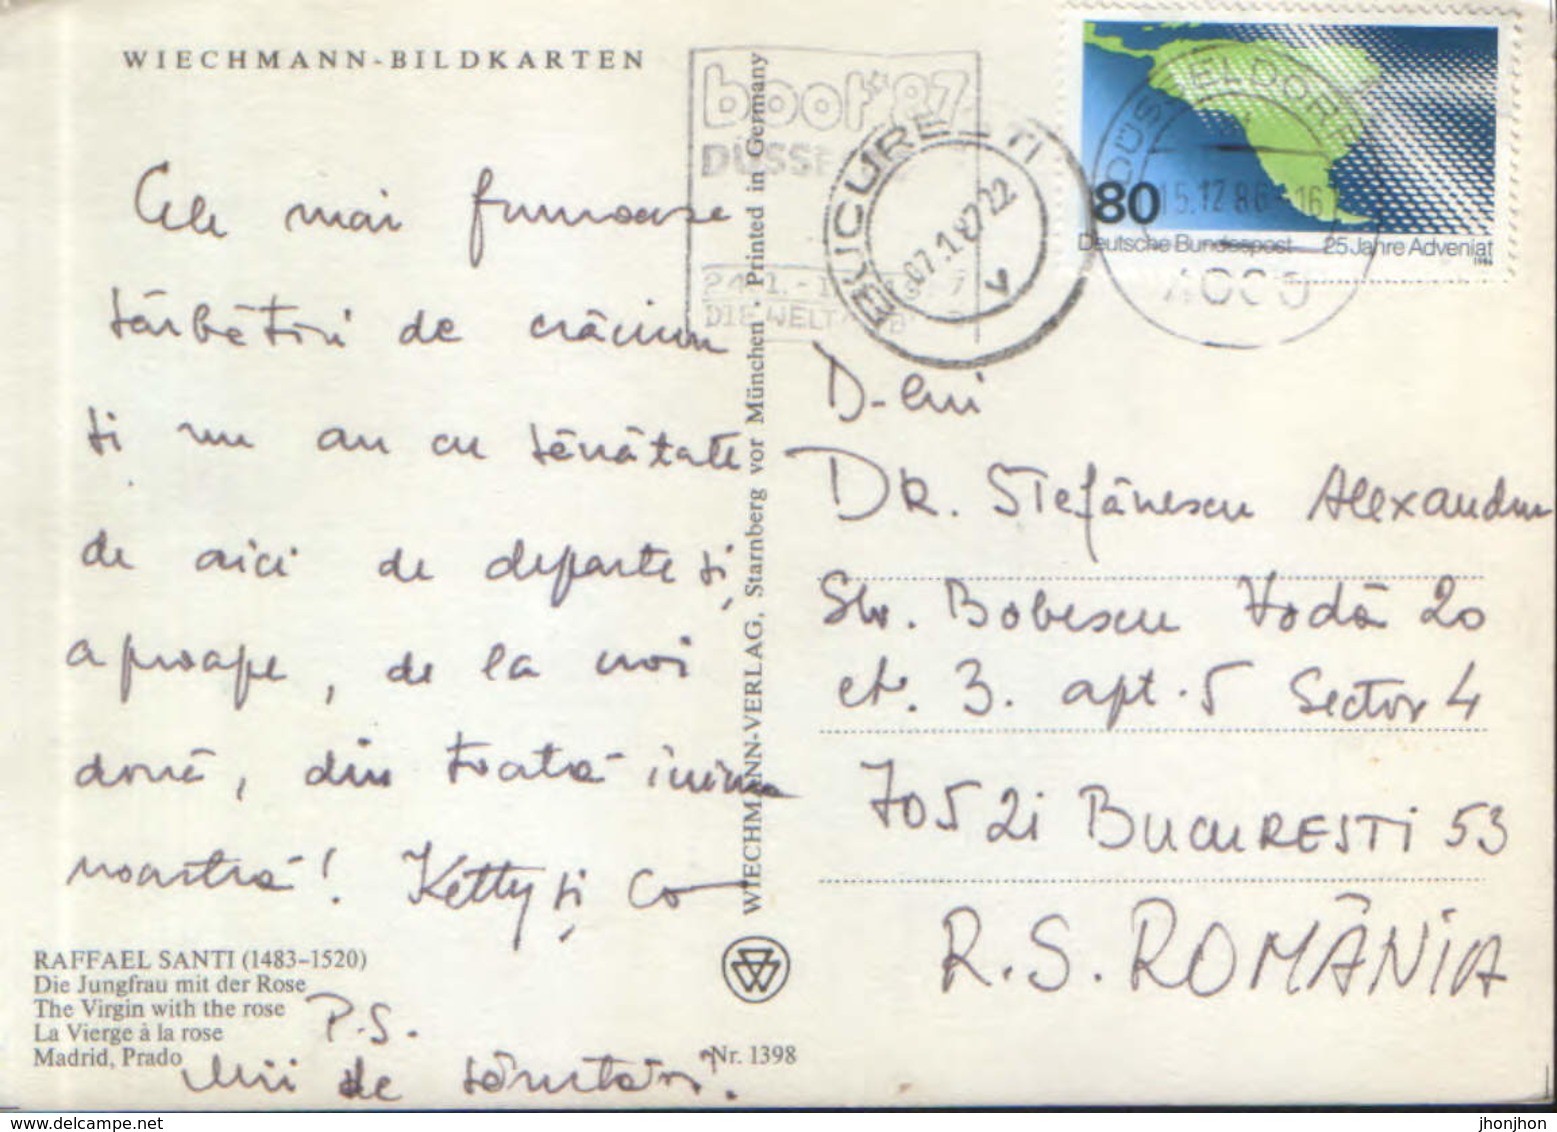 WIECHMANN-BILDKARTEN
Cele mai frumoase
sărbători de crăciun
și un an cu sănătate
de aici de departe și,
aproape, de la noi
două, din toată inima
noastră! Ketty și Co
RAFFAEL SANTI (1483–1520)
Die Jungfrau mit der Rose
The Virgin with the rose
La Vierge à la rose
Madrid, Prado
P.S.
Mii de sărutări.
Nr. 1398
WIECHMANN-VERLAG, Starnberg vor München · Printed in Germany
boot'87
DIE WELT
BUCUREȘTI
07.1.87 22
V
DÜSSELDORF
15.12.86-16
80
Deutsche Bundespost 25 Jahre Adveniat
1986
D-lui
DR. Ștefănescu Alexandru
Str. Bobescu Vodă 20
et. 3. apt. 5 Sector 4
70521 BUCUREȘTI 53
R.S. ROMÂNIA
jhonjhon
www.delcampe.net